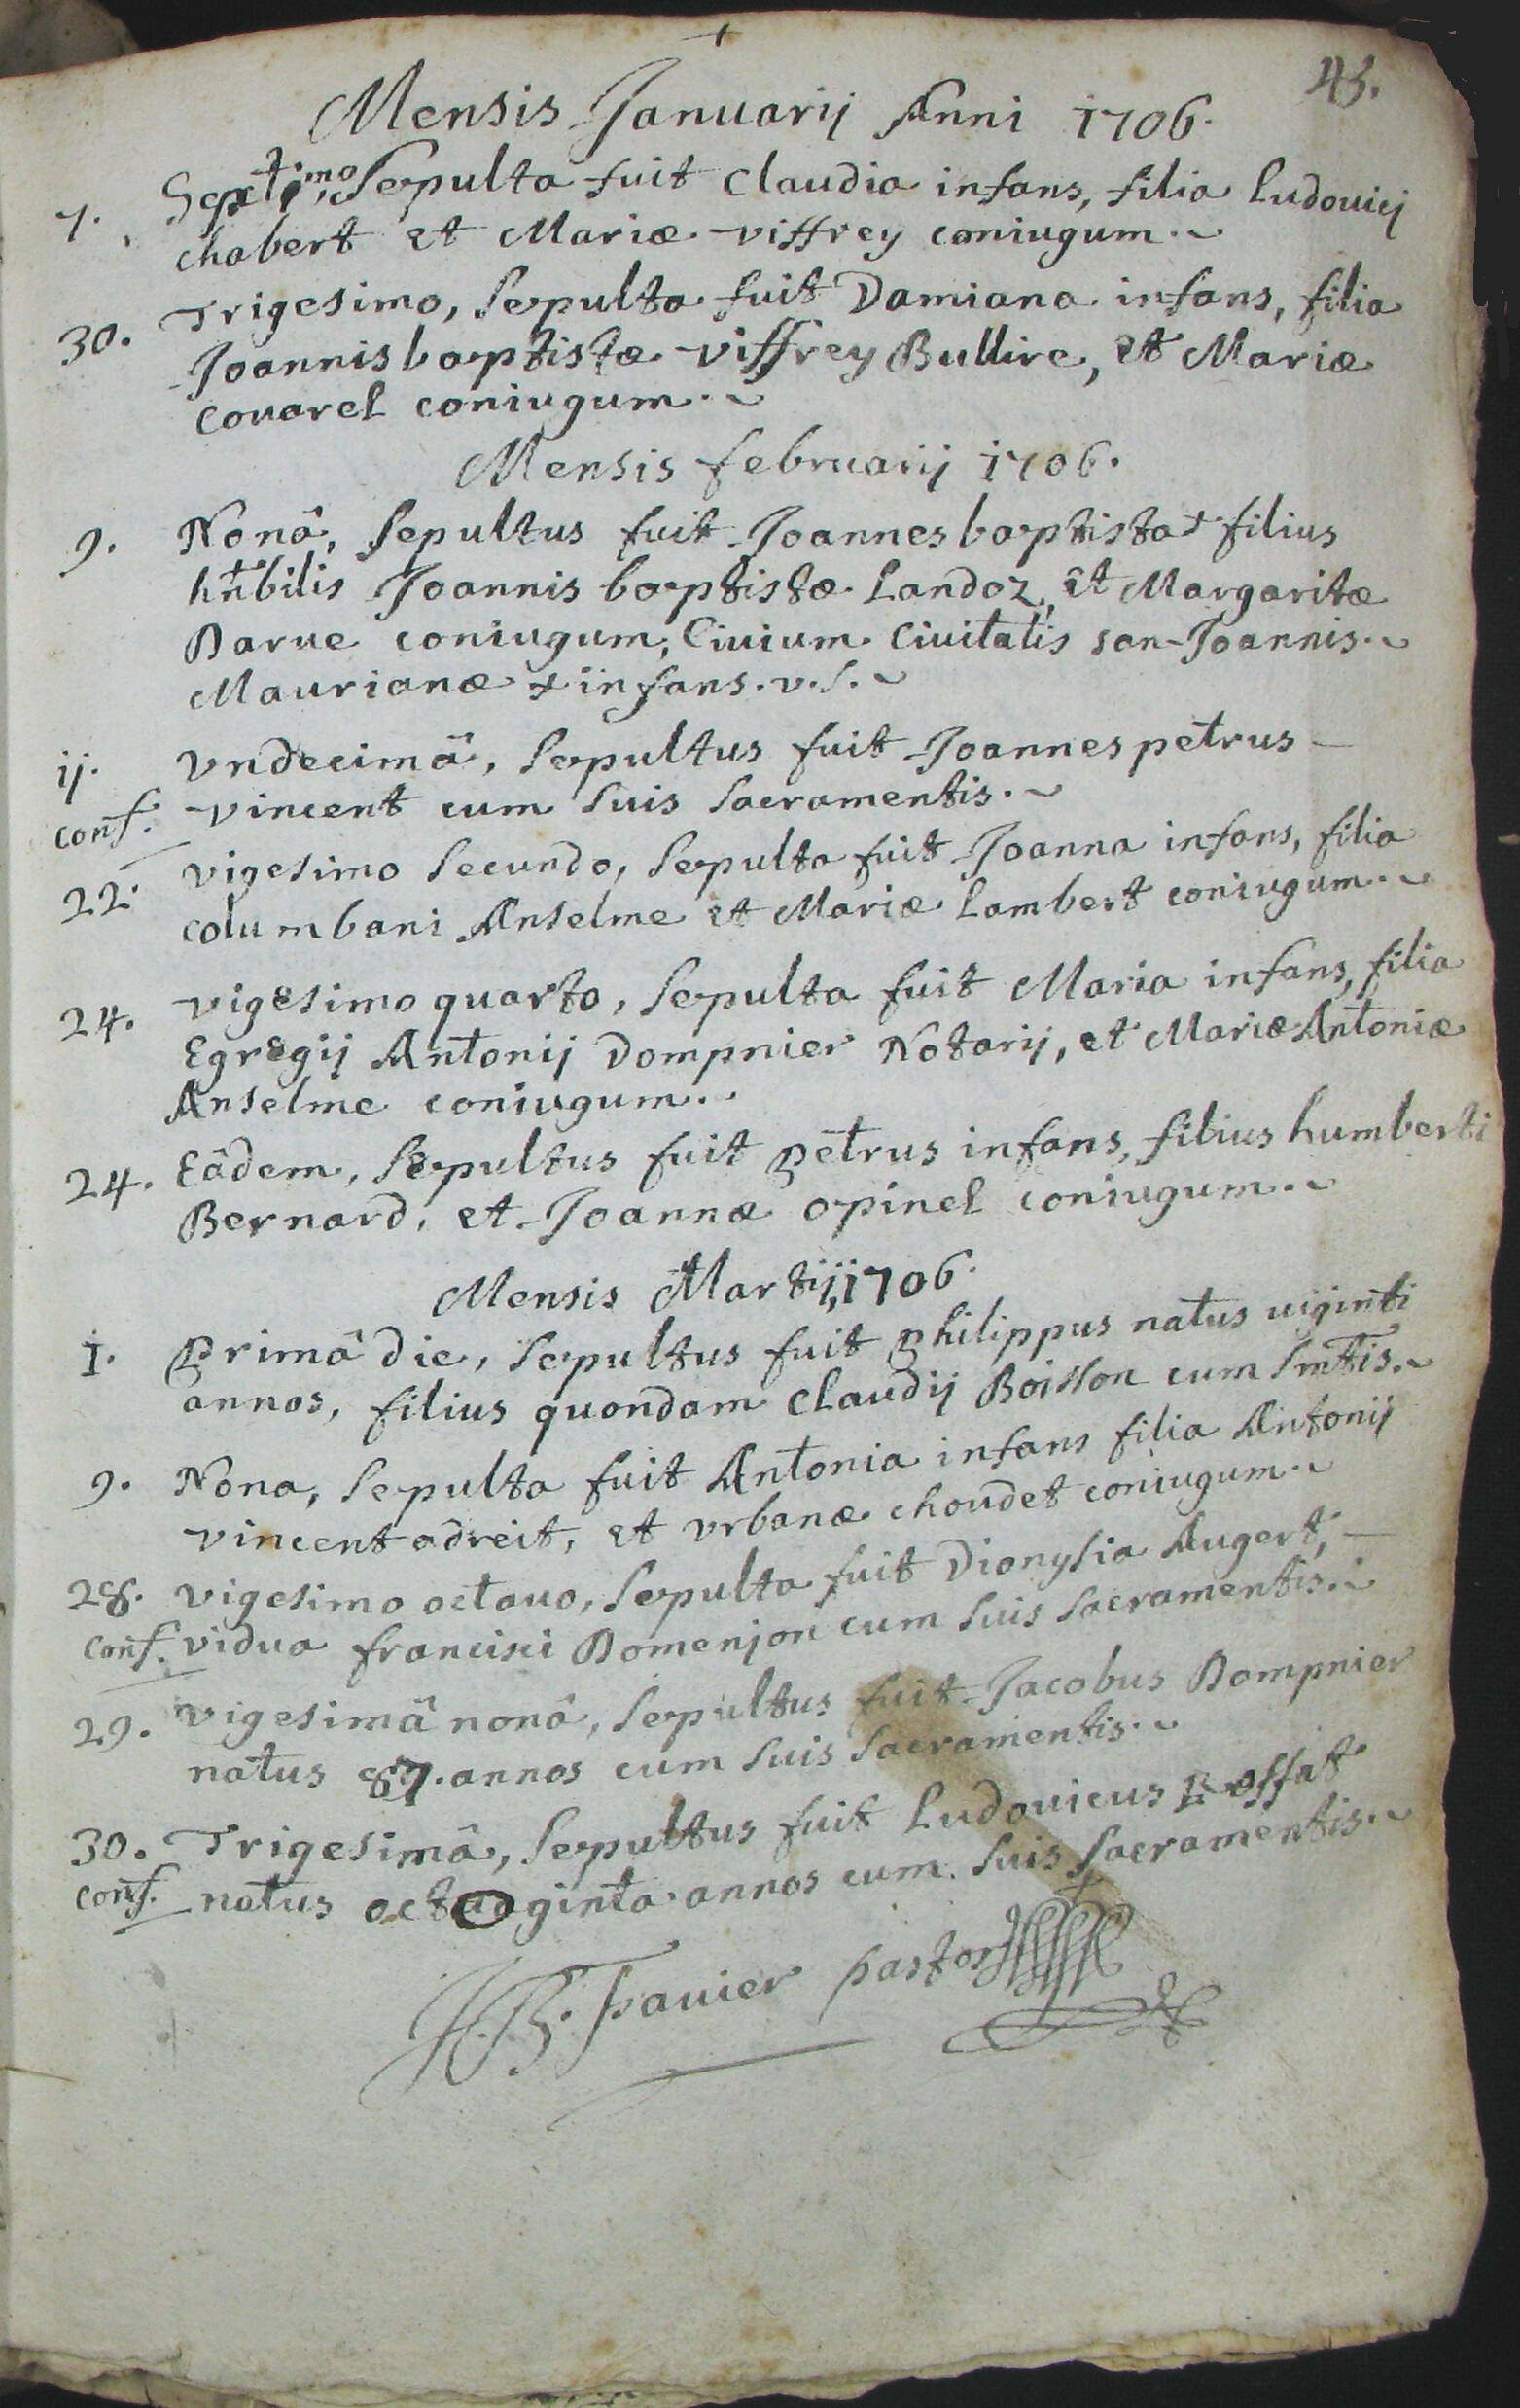 +
43.
Mensis Januarij Anni 1706.
7. Septimo, Sepulta fuit Claudia infans, filia Ludouici
chabert et Mariæ viffrey coniugum.~
30. Trigesimo, Sepulta fuit Damiana infans, filia
Joannisbaptistæ viffrey Bullire, et Mariæ
couarel coniugum.~
Mensis februarij 1706.
9. Nonâ, Sepultus fuit Joannesbaptista + filius
hnbilis Joannis baptistæ Landoz, et Margaritæ
Darue coniugum, Ciuium Ciuitatis san-Joannis.~
Maurianæ + infans. v. s.~
ij. vndecimâ, Sepultus fuit Joannespetrus –
conf. vincent cum suis sacramentis.~
22. vigesimo secundo, Sepulta fuit Joanna infans, filia
columbani Anselme et Mariæ Lambert coniugum.~
24. vigesimo quarto, Sepulta fuit Maria infans, filia
Egregij Antonij Dompnier Notarij, et MariæAntoniæ
Anselme coniugum..
24. Eâdem, Sepultus fuit petrus infans, filius humberti
Bernard, et Joannæ opinel coniugum.~
Mensis Martij, 1706.
1. Primâ die, Sepultus fuit philippus natus uiginti
annos, filius quondam Claudij Boisson cum Smtis.~
9. Nona, Sepulta fuit Antonia infans filia Antonij
vincent adreit, et vrbanæ choudet coniugum.~
28. vigesimo octauo, Sepulta fuit Dionysia Augert, –
conf. vidua francisci Domenjon cum suis sacramentis.~
29. vigesimâ nonâ, Sepultus fuit Jacobus Dompnier
natus 87. annos cum suis sacramentis.~
30. Trigesimâ, Sepultus fuit Ludouicus Rossat
conf. natus octoginta annos cum suis sacramentis.~
J.B. Fauier pastor